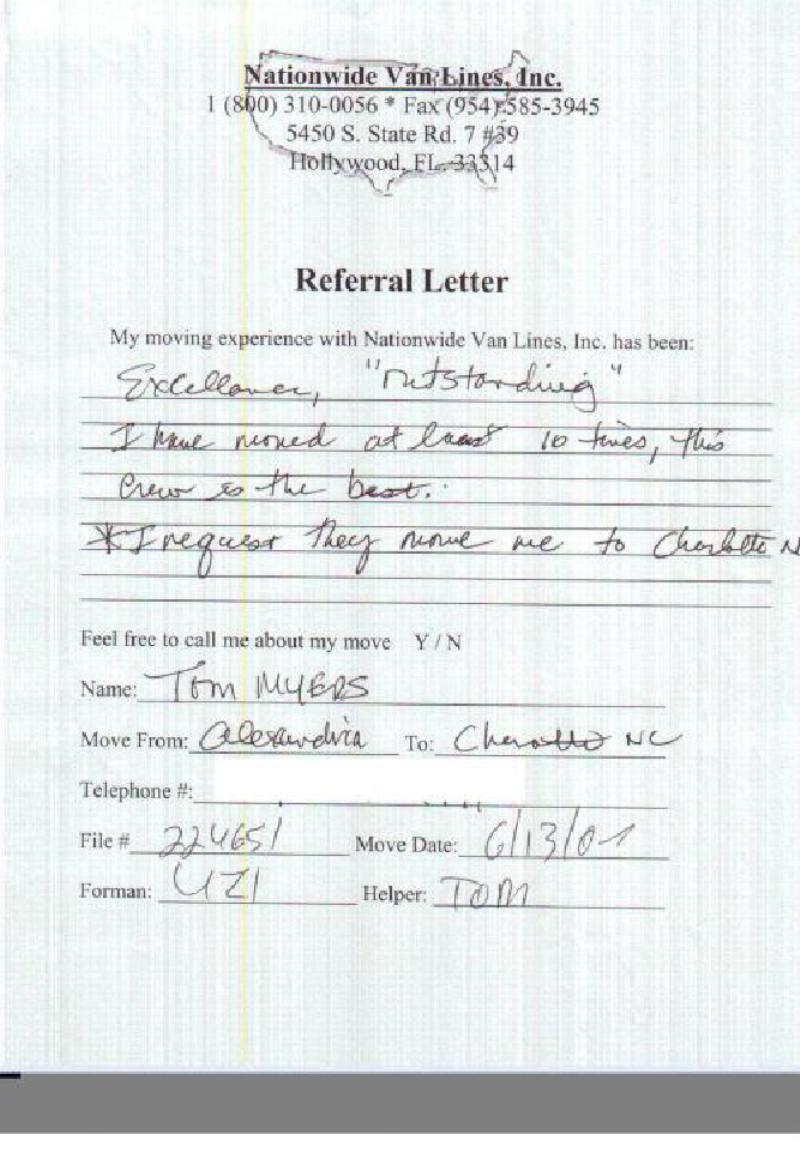 Nationwide Van Lines, Inc.
1 (800) 310-0056 * Fax (954) 585-3945
5450 S. State Rd. 7 #39
Hollywood, FL. 33314
Referral Letter
My moving experience with Nationwide Van Lines, Inc. has been:
"outstanding"
I have moved at least 10 times, this
crew is the best.
*I request they move me to Charlotte N
Feel free to call me about my move Y / N
Name: Tom MYERS
Move From: Alexandria To: Charlotte NC
Telephone #:
File # 224651 Move Date: 6/13/01
Forman: UZI Helper: TOM